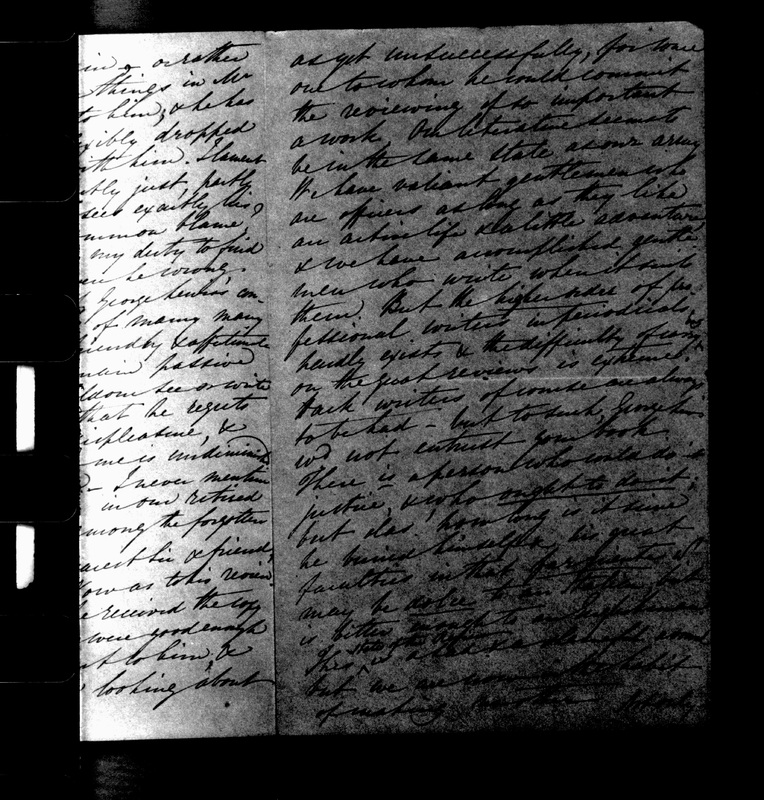 in & or rather
things in Mr
to him; & he has
xibly dropped
ith him. I lament
bly just, partly
sees exactly his,
mmon blame,
my duty to find
be wrong.
George Lewis's con-
of many many
passive
ldom see or write
that he regrets
displeasure, &
me is undiminished
- I never mention
in our retired
among the forgotten
arest Sir & friend,
Now as this review
he received the copy
were good enough
nt to him, &
looking about
as yet unsuccessfully, for some
one to whom he would commit
the reviewing of so important
a work. Our literature seems to
be in the same state as our army
We have valiant gentlemen who
are officers as long as they like
an active life & a little adventure
& we have accomplished gentle-
men who write when it suits
them. But the higher order of pro-
fessional writers in periodicals
hardly exists & the difficulty of carrying
on the great reviews is extreme.
Hack writers of course are always
to be had - but to such, George Lewis
wd not entrust your book.
There is a person who could do it
justice, & who ought to do it;
but alas, how long is it since
he buried himself & his great
faculties in that far
may be to an but
is bitter to an Englishman
This is
but we are now in the habit
of making nobody